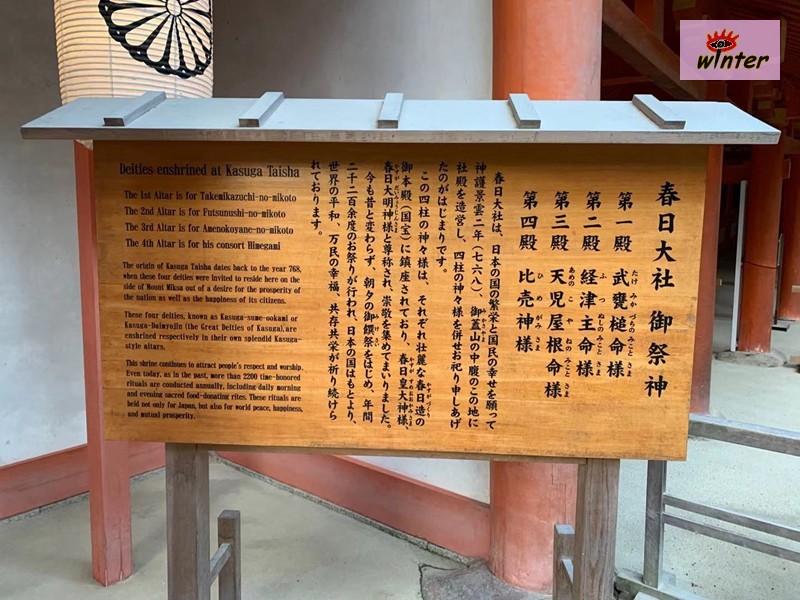 春日大社 御祭神
第一殿 武甕槌命様
たけ みか づちの みこと さま
第二殿 経津主命様
ふ つ ぬしの みこと さま
第三殿 天児屋根命様
あめの こ や ねの みこと さま
第四殿 比売神様
ひ め がみ さま
春日大社は、日本の国の繁栄と国民の幸せを願って
神護景雲二年(七六八)、御蓋山の中腹のこの地に
みかさやま
社殿を造営し、四柱の神々様を併せお祀り申しあげ
たのがはじまりです。
この四柱の神々様は、それぞれ壮麗な春日造の
かすがづくり
御本殿(国宝)に鎮座されており、春日皇大神様、
かすが すめおおかみさま
春日大明神様と尊称され、崇敬を集めてまいりました。
かすが だいみょうじんさま
今も昔と変わらず、朝夕の御饌祭をはじめ、年間
二千二百余度のお祭りが行われ、日本の国はもとより、
世界の平和、万民の幸福、共存共栄が祈り続けら
れております。
Deities enshrined at Kasuga Taisha
The 1st Altar is for Takemikazuchi-no-mikoto
The 2nd Altar is for Futsunushi-no-mikoto
The 3rd Altar is for Amenokoyane-no-mikoto
The 4th Altar is for his consort Himegami
The origin of Kasuga Taisha dates back to the year 768,
when these four deities were invited to reside here on the
side of Mount Mikasa out of a desire for the prosperity of
the nation as well as the happiness of its citizens.
These four deities, known as Kasuga-sume-ookami or
Kasuga-Daimyojin (the Great Deities of Kasuga), are
enshrined respectively in their own splendid Kasuga-
style altars.
This shrine continues to attract people's respect and worship.
Even today, as in the past, more than 2200 time-honored
rituals are conducted annually, including daily morning
and evening sacred food-donating rites. These rituals are
held not only for Japan, but also for world peace, happiness,
and mutual prosperity.
winter